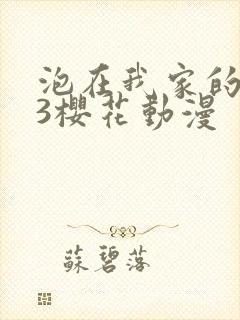 泡在我家的
3櫻花動漫
蘇碧落